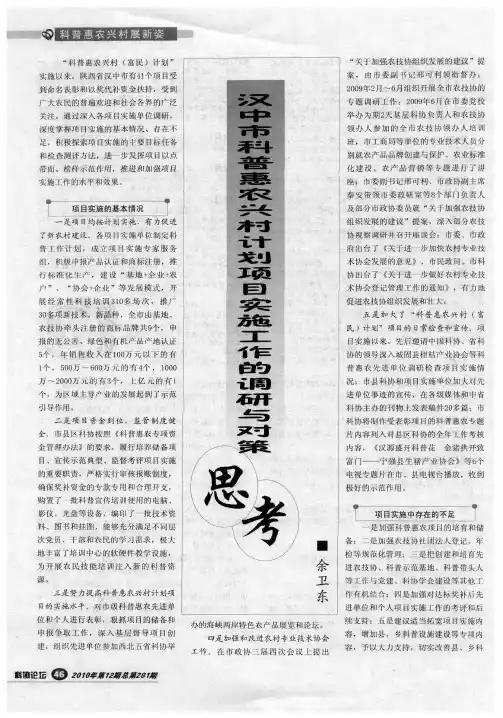 科普惠农兴村展新姿
“科普惠农兴村（富民）计划”
实施以来，陕西省汉中市有31个项目受
到命名表彰和以奖代补资金扶持，受到
广大农民的普遍欢迎和社会各界的广泛
关注。通过深入各项目实施单位调研，
深度掌握项目实施的基本情况、存在不
足，积极探索项目实施的主要目标任务
和检查测评方法，进一步发挥项目以点
带面、榜样示范作用，推进和加强项目
实施工作的水平和效果。
项目实施的基本情况
一是项目均按计划实施，有力促进
了新农村建设。各项目实施单位制定科
普工作计划，成立项目实施专家服务
组，积极申报产品认证和商标注册，推
行标准化生产，建设“基地+企业+农
户”、“协会+企业”等发展模式，开
展经常性科技培训310多场次，推广
30多项新技术、新品种，全市由基地、
农技协牵头注册的商标品牌共9个，申
报的无公害、绿色和有机产品产地认证
5个，年销售收入在100万元以下的有
1个、500万～600万元的有4个、1000
万～2000万元的有3个，上亿元的有1
个，为区域主导产业的发展起到了示范
引导作用。
二是项目资金到位，监管制度健
全。市县区科协按照《科普惠农专项资
金管理办法》的要求，履行培养储备项
目、宣传示范典型、监督考评项目实施
的重要职责，严格实行审核报账制度，
确保奖补资金的专款专用和合理开支，
购置了一批科普宣传培训使用的电脑、
影仪、光盘等设备，编印了一批技术资
料、图书和挂图，能够充分满足不同层
次党员、干部和农民的学习需求，极大
地丰富了培训中心的软硬件教学设施，
为开展农民技能培训注入新的科普资
源。
三是努力提高科普惠农兴村计划项
目的实施水平。对市级科普惠农先进单
位和个人进行表彰，狠抓项目的储备和
申报争取工作，深入基层督导项目创
建，组织先进单位参加西北五省科协举
汉中市科普惠农兴村计划项目实施工作的调研与对策
思考
■余卫东
办的海峡两岸特色农产品展览和论坛。
四是加强和改进农村专业技术协会
工作。在市政协三届四次会议上提出
“关于加强农技协组织发展的建议”提
案，由市委副书记邢可利领衔督办；
2009年2月～6月组织开展全市农技协的
专题调研工作；2009年6月在市委党校
举办为期2天基层科协负责人和农技协
领办人参加的全市农技协领办人培训
班，市工商局等单位的专业技术人员分
别就农产品品牌创建与保护、农业标准
化建设、农产品营销等专题进行了讲
座；市委副书记邢可利、市政协副主席
秦安带领市委政研室等8个部门负责人
及部分市政协委员就“关于加强农技协
组织发展的建议”提案，深入部分农技
协视察调研并召开座谈会；市委、市政
府出台了《关于进一步加快农村专业技
术协会发展的意见》，市民政局、市科
协出台了《关于进一步做好农村专业技
术协会登记管理工作的通知》，有力地
促进农技协组织发展和壮大。
五是加大了“科普惠农兴村（富
民）计划”项目的日常检查和宣传。项
目实施以来，先后邀请中国科协、省科
协的领导深入城固县柑桔产业协会等科
普惠农先进单位调研检查项目实施情
况；市县科协和项目实施单位加大对先
进单位事迹的宣传，在各级媒体和中省
科协主办的刊物上发表稿件20多篇；市
科协将制作受表彰项目的科普惠农专题
片内容列入对县区科协的全年工作考核
内容，《汉源盛开科普花　金猪拱开致
富门——宁强县生猪产业协会》等6个
电视专题片在市、县电视台播放，收到
极好的示范作用。
项目实施中存在的不足
一是加强科普惠农项目的培育和储
备；二是加强农技协社团法人登记、年
检等规范化管理；三是把创建和培育先
进农技协、科普示范基地、科普带头人
等工作与党建、科协学会建设等其他工
作有机结合；四是加强对达标奖补后先
进单位和个人项目实施工作的考评和后
续支持；五是建议适当拓宽项目实施内
容，增加县、乡科普设施建设等专项内
容，予以大力支持，切实改善县、乡科
科协论坛 46 2010年第12期总第281期